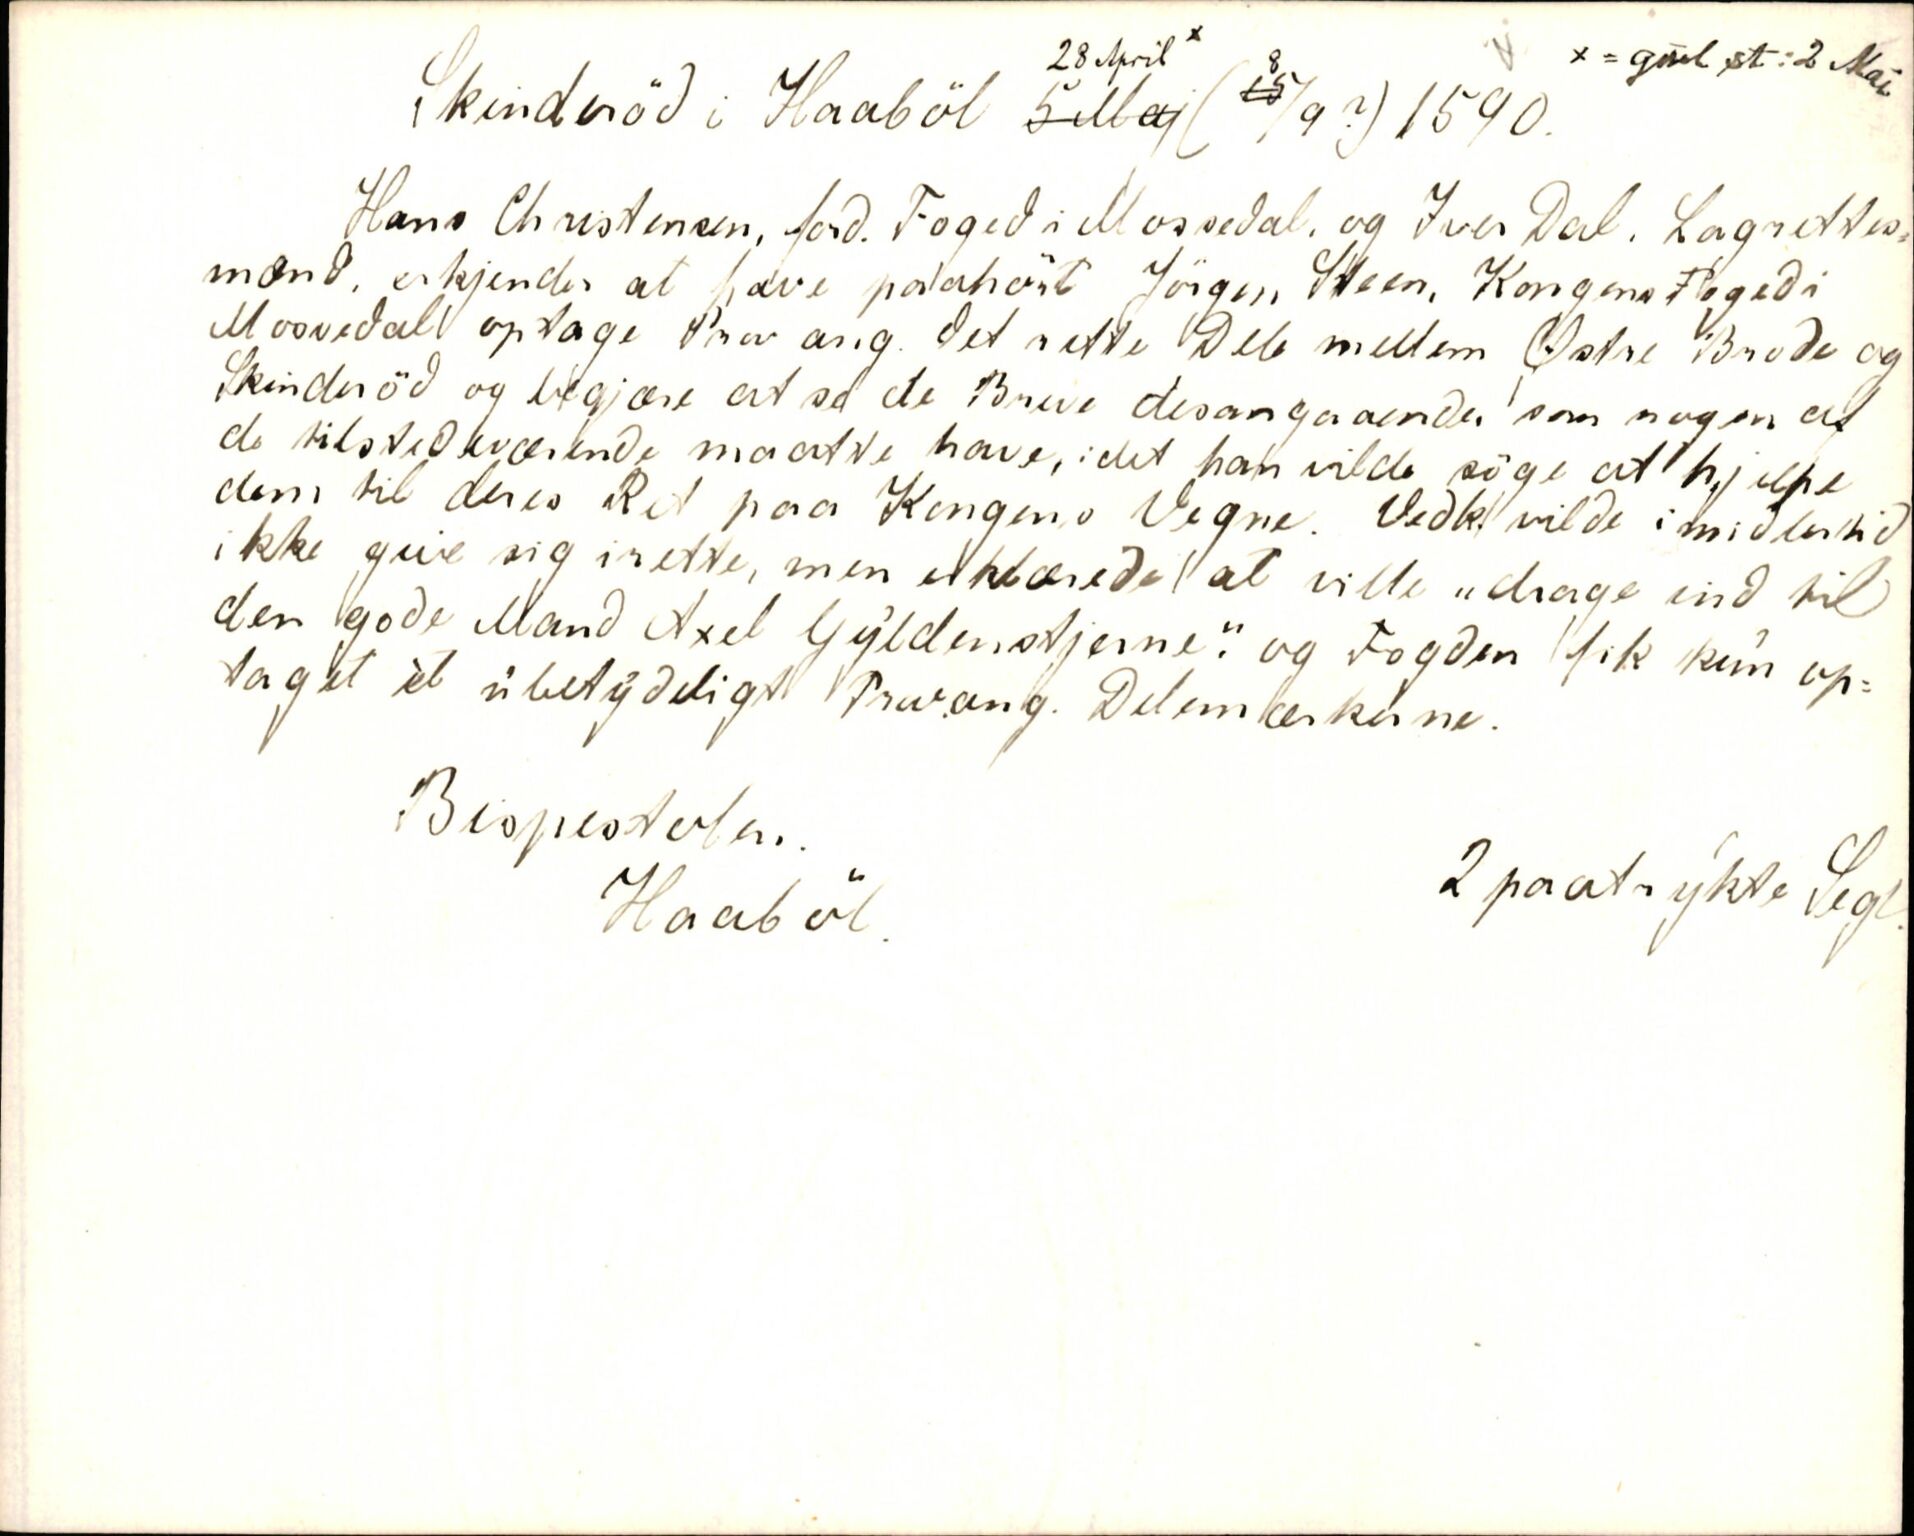 28 April x
x = gml. st: 2 Mai
8
Skinderöd i Haaböl 5 Maj (15/9?) 1590.
Hans Christensen, ford. Foged i Mossedal, og Iver Dal, Lagrettes=
mænd, erkjender at have paahört Jörgen Steen, Kongens Foged i
Mossedal optage Prov ang. det rette Dele mellem Østre Brode og
Skinderöd og begjære at se de Breve desangaaende som nogen af
de tilstedeværende maatte have, idet han vilde söge at hjelpe
dem til deres Ret paa Kongens Vegne. Vedk. vilde imidlertid
ikke give sig irette, men erklærede at ville "drage ind til
den gode Mand Axel Gyldenstjerne" og Fogden fik kun op=
taget et ubetydeligt Prov ang. Delemærkerne.
Bispestolen.
Haaböl.
2 paatrykte Segl.